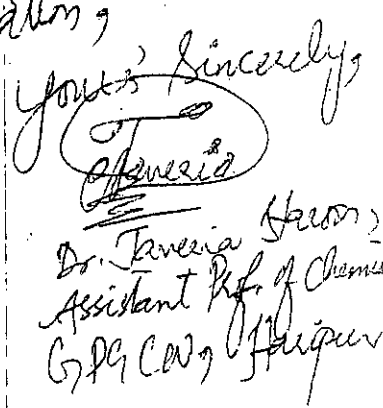 Your's Sincerely,
Javeria
Dr. Javeria Haroon,
Assistant Prof. of Chemis
GPGC(W), Haripur